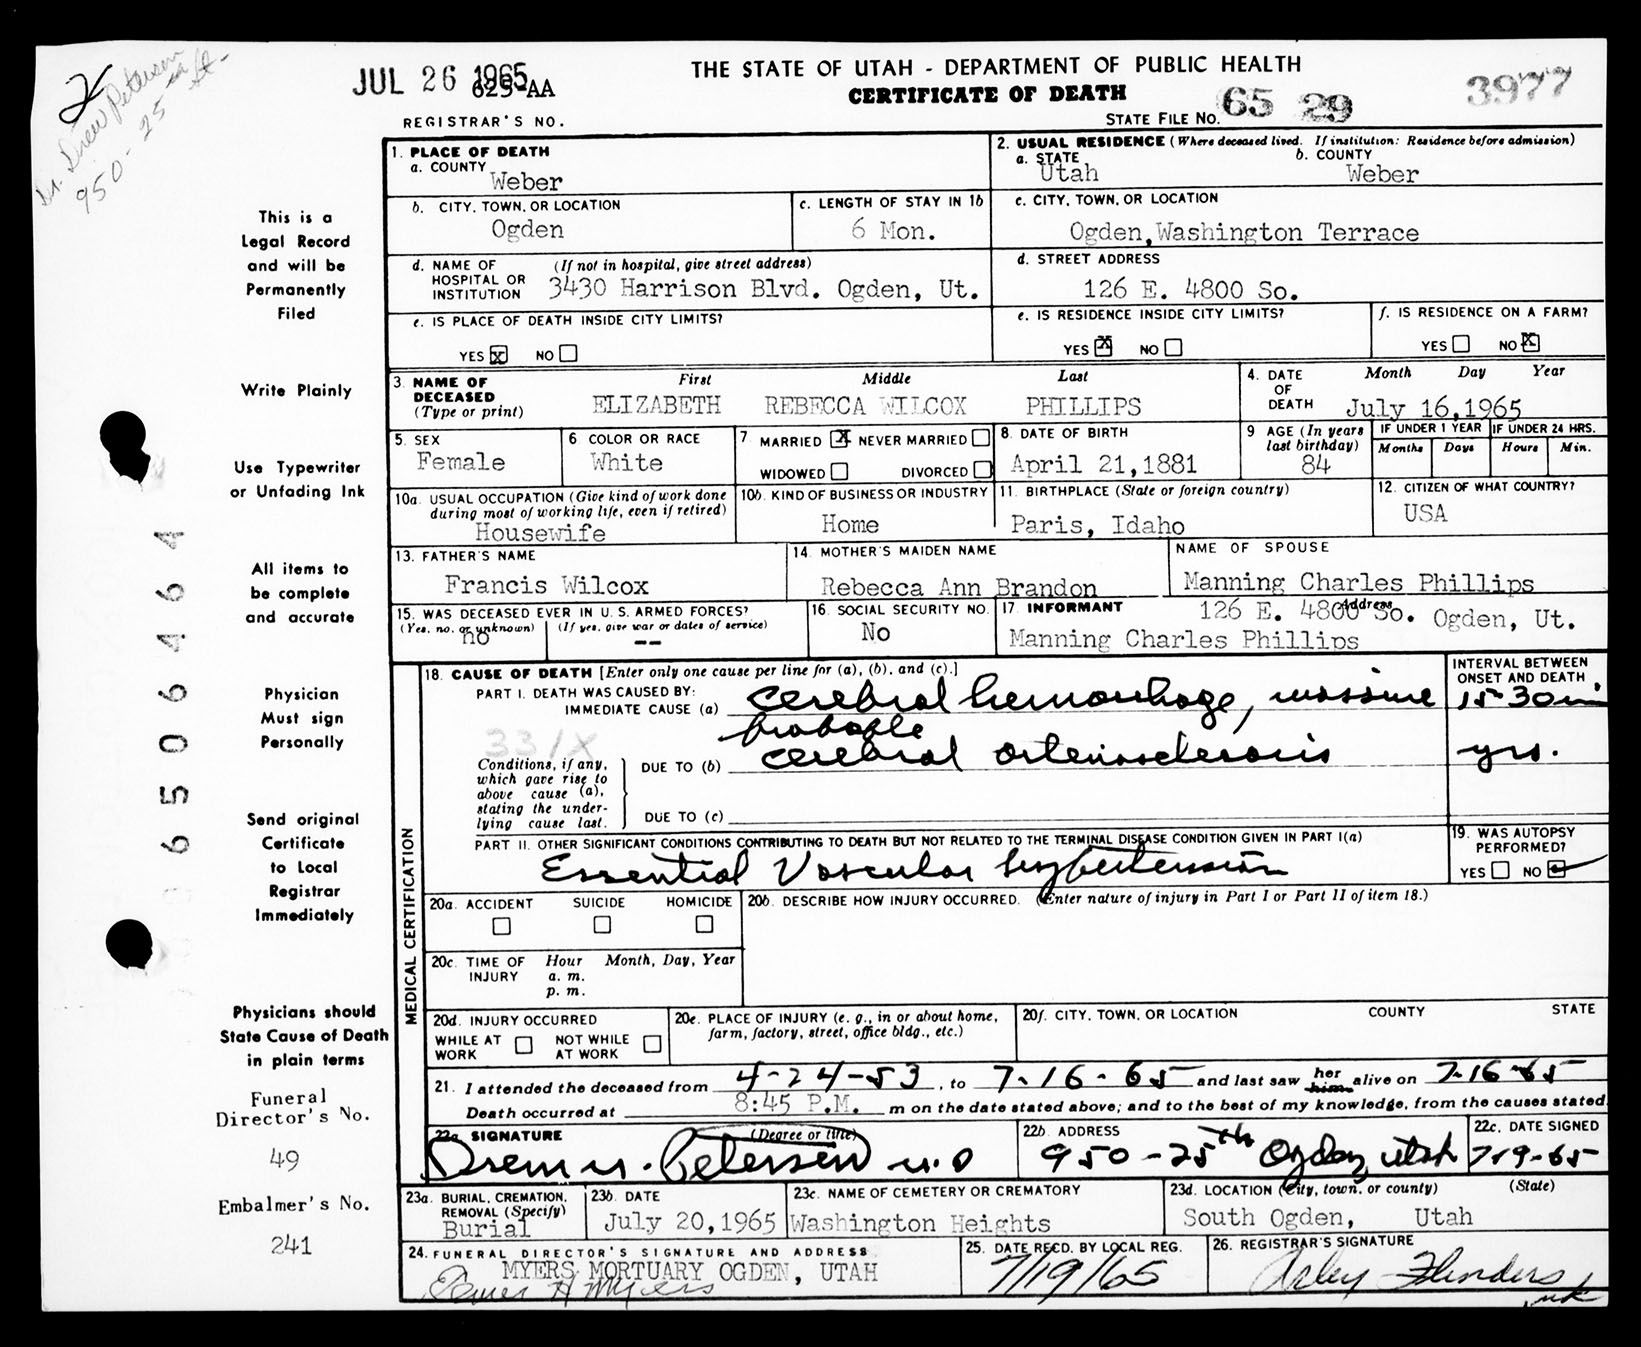 2
Dr. Drew Petersen
950 - 25 th St-
JUL 26 1965
625-AA
REGISTRAR'S NO.
THE STATE OF UTAH - DEPARTMENT OF PUBLIC HEALTH
CERTIFICATE OF DEATH
STATE FILE NO. 65 29
3977
This is a
Legal Record
and will be
Permanently
Filed
Write Plainly
Use Typewriter
or Unfading Ink
All items to
be complete
and accurate
Physician
Must sign
Personally
Send original
Certificate
to Local
Registrar
Immediately
Physicians should
State Cause of Death
in plain terms
Funeral
Director's No.
49
Embalmer's No.
241
6506464
1. PLACE OF DEATH
a. COUNTY
Weber
2. USUAL RESIDENCE (Where deceased lived. If institution: Residence before admission)
a. STATE
Utah
b. COUNTY
Weber
b. CITY, TOWN, OR LOCATION
Ogden
c. LENGTH OF STAY IN 1b
6 Mon.
c. CITY, TOWN, OR LOCATION
Ogden, Washington Terrace
d. NAME OF HOSPITAL OR INSTITUTION
(If not in hospital, give street address)
3430 Harrison Blvd. Ogden, Ut.
d. STREET ADDRESS
126 E. 4800 So.
e. IS PLACE OF DEATH INSIDE CITY LIMITS?
YES X NO
e. IS RESIDENCE INSIDE CITY LIMITS?
YES X NO
f. IS RESIDENCE ON A FARM?
YES NO X
3. NAME OF DECEASED (Type or print)
First Middle Last
ELIZABETH REBECCA WILCOX PHILLIPS
4. DATE OF DEATH
Month Day Year
July 16,1965
5. SEX
Female
6 COLOR OR RACE
White
7 MARRIED X NEVER MARRIED
WIDOWED DIVORCED
8. DATE OF BIRTH
April 21,1881
9 AGE (In years last birthday)
84
IF UNDER 1 YEAR
Months Days
IF UNDER 24 HRS.
Hours Min.
10a. USUAL OCCUPATION (Give kind of work done during most of working life, even if retired)
Housewife
10b. KIND OF BUSINESS OR INDUSTRY
Home
11. BIRTHPLACE (State or foreign country)
Paris, Idaho
12. CITIZEN OF WHAT COUNTRY?
USA
13. FATHER'S NAME
Francis Wilcox
14. MOTHER'S MAIDEN NAME
Rebecca Ann Brandon
NAME OF SPOUSE
Manning Charles Phillips
15. WAS DECEASED EVER IN U.S. ARMED FORCES?
(Yes, no, or unknown) (If yes, give war or dates of service)
no --
16. SOCIAL SECURITY NO.
No
17. INFORMANT Address
126 E. 4800 So. Ogden, Ut.
Manning Charles Phillips
MEDICAL CERTIFICATION
18. CAUSE OF DEATH [Enter only one cause per line for (a), (b), and (c).]
INTERVAL BETWEEN ONSET AND DEATH
PART I. DEATH WAS CAUSED BY:
IMMEDIATE CAUSE (a) cerebral hemorrhage, massive 15-30 min
331X
Conditions, if any, which gave rise to above cause (a), stating the underlying cause last.
probable
DUE TO (b) cerebral arteriosclerosis yrs.
DUE TO (c)
PART II. OTHER SIGNIFICANT CONDITIONS CONTRIBUTING TO DEATH BUT NOT RELATED TO THE TERMINAL DISEASE CONDITION GIVEN IN PART I(a)
Essential Vascular hypertension
19. WAS AUTOPSY PERFORMED?
YES NO
20a. ACCIDENT SUICIDE HOMICIDE
20b. DESCRIBE HOW INJURY OCCURRED. (Enter nature of injury in Part I or Part II of item 18.)
20c. TIME OF INJURY
Hour Month, Day, Year
a. m.
p. m.
20d. INJURY OCCURRED
WHILE AT WORK NOT WHILE AT WORK
20e. PLACE OF INJURY (e. g., in or about home, farm, factory, street, office bldg., etc.)
20f. CITY, TOWN, OR LOCATION COUNTY STATE
21. I attended the deceased from 4-24-53, to 7-16-65 and last saw her him alive on 7-16-65
Death occurred at 8:45 P.M. m on the date stated above; and to the best of my knowledge, from the causes stated.
22a. SIGNATURE (Degree or title)
Drew M. Petersen M.D
22b. ADDRESS
950-25th Ogden, Utah
22c. DATE SIGNED
7-19-65
23a. BURIAL, CREMATION, REMOVAL (Specify)
Burial
23b. DATE
July 20,1965
23c. NAME OF CEMETERY OR CREMATORY
Washington Heights
23d. LOCATION (City, town, or county) (State)
South Ogden, Utah
24. FUNERAL DIRECTOR'S SIGNATURE AND ADDRESS
MYERS MORTUARY OGDEN, UTAH
H Myers
25. DATE RECD. BY LOCAL REG.
7/19/65
26. REGISTRAR'S SIGNATURE
Flinders